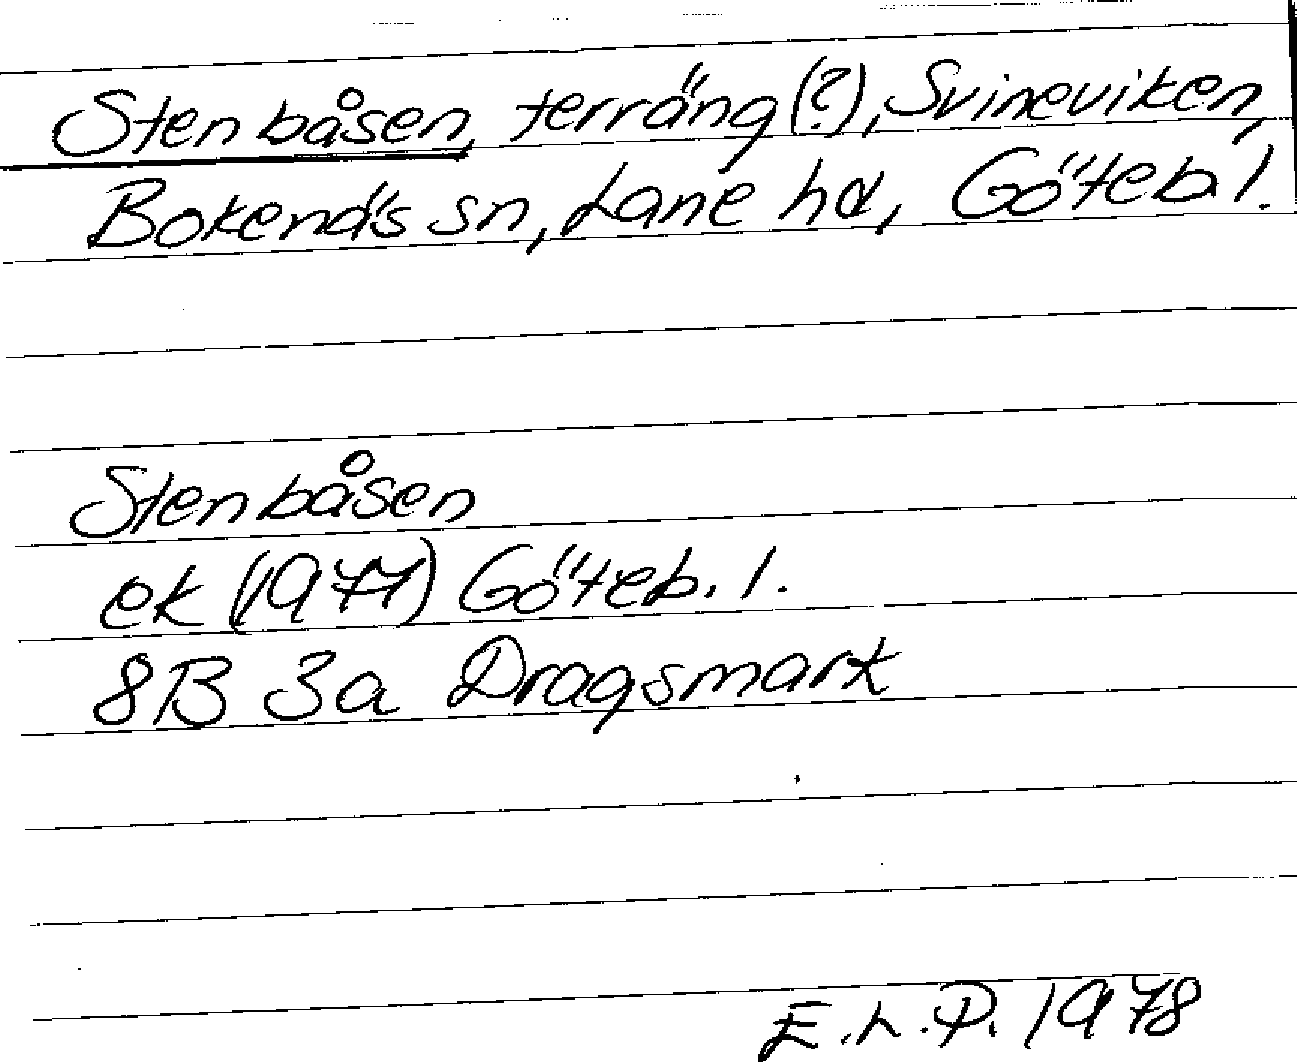 Stenbåsen, terräng (?), Svineviken,
Bokenäs sn, Lane hd, Göteb. l.
Stenbåsen
ek (1977) Göteb. l.
8B 3a Dragsmark
E.L.P. 1978